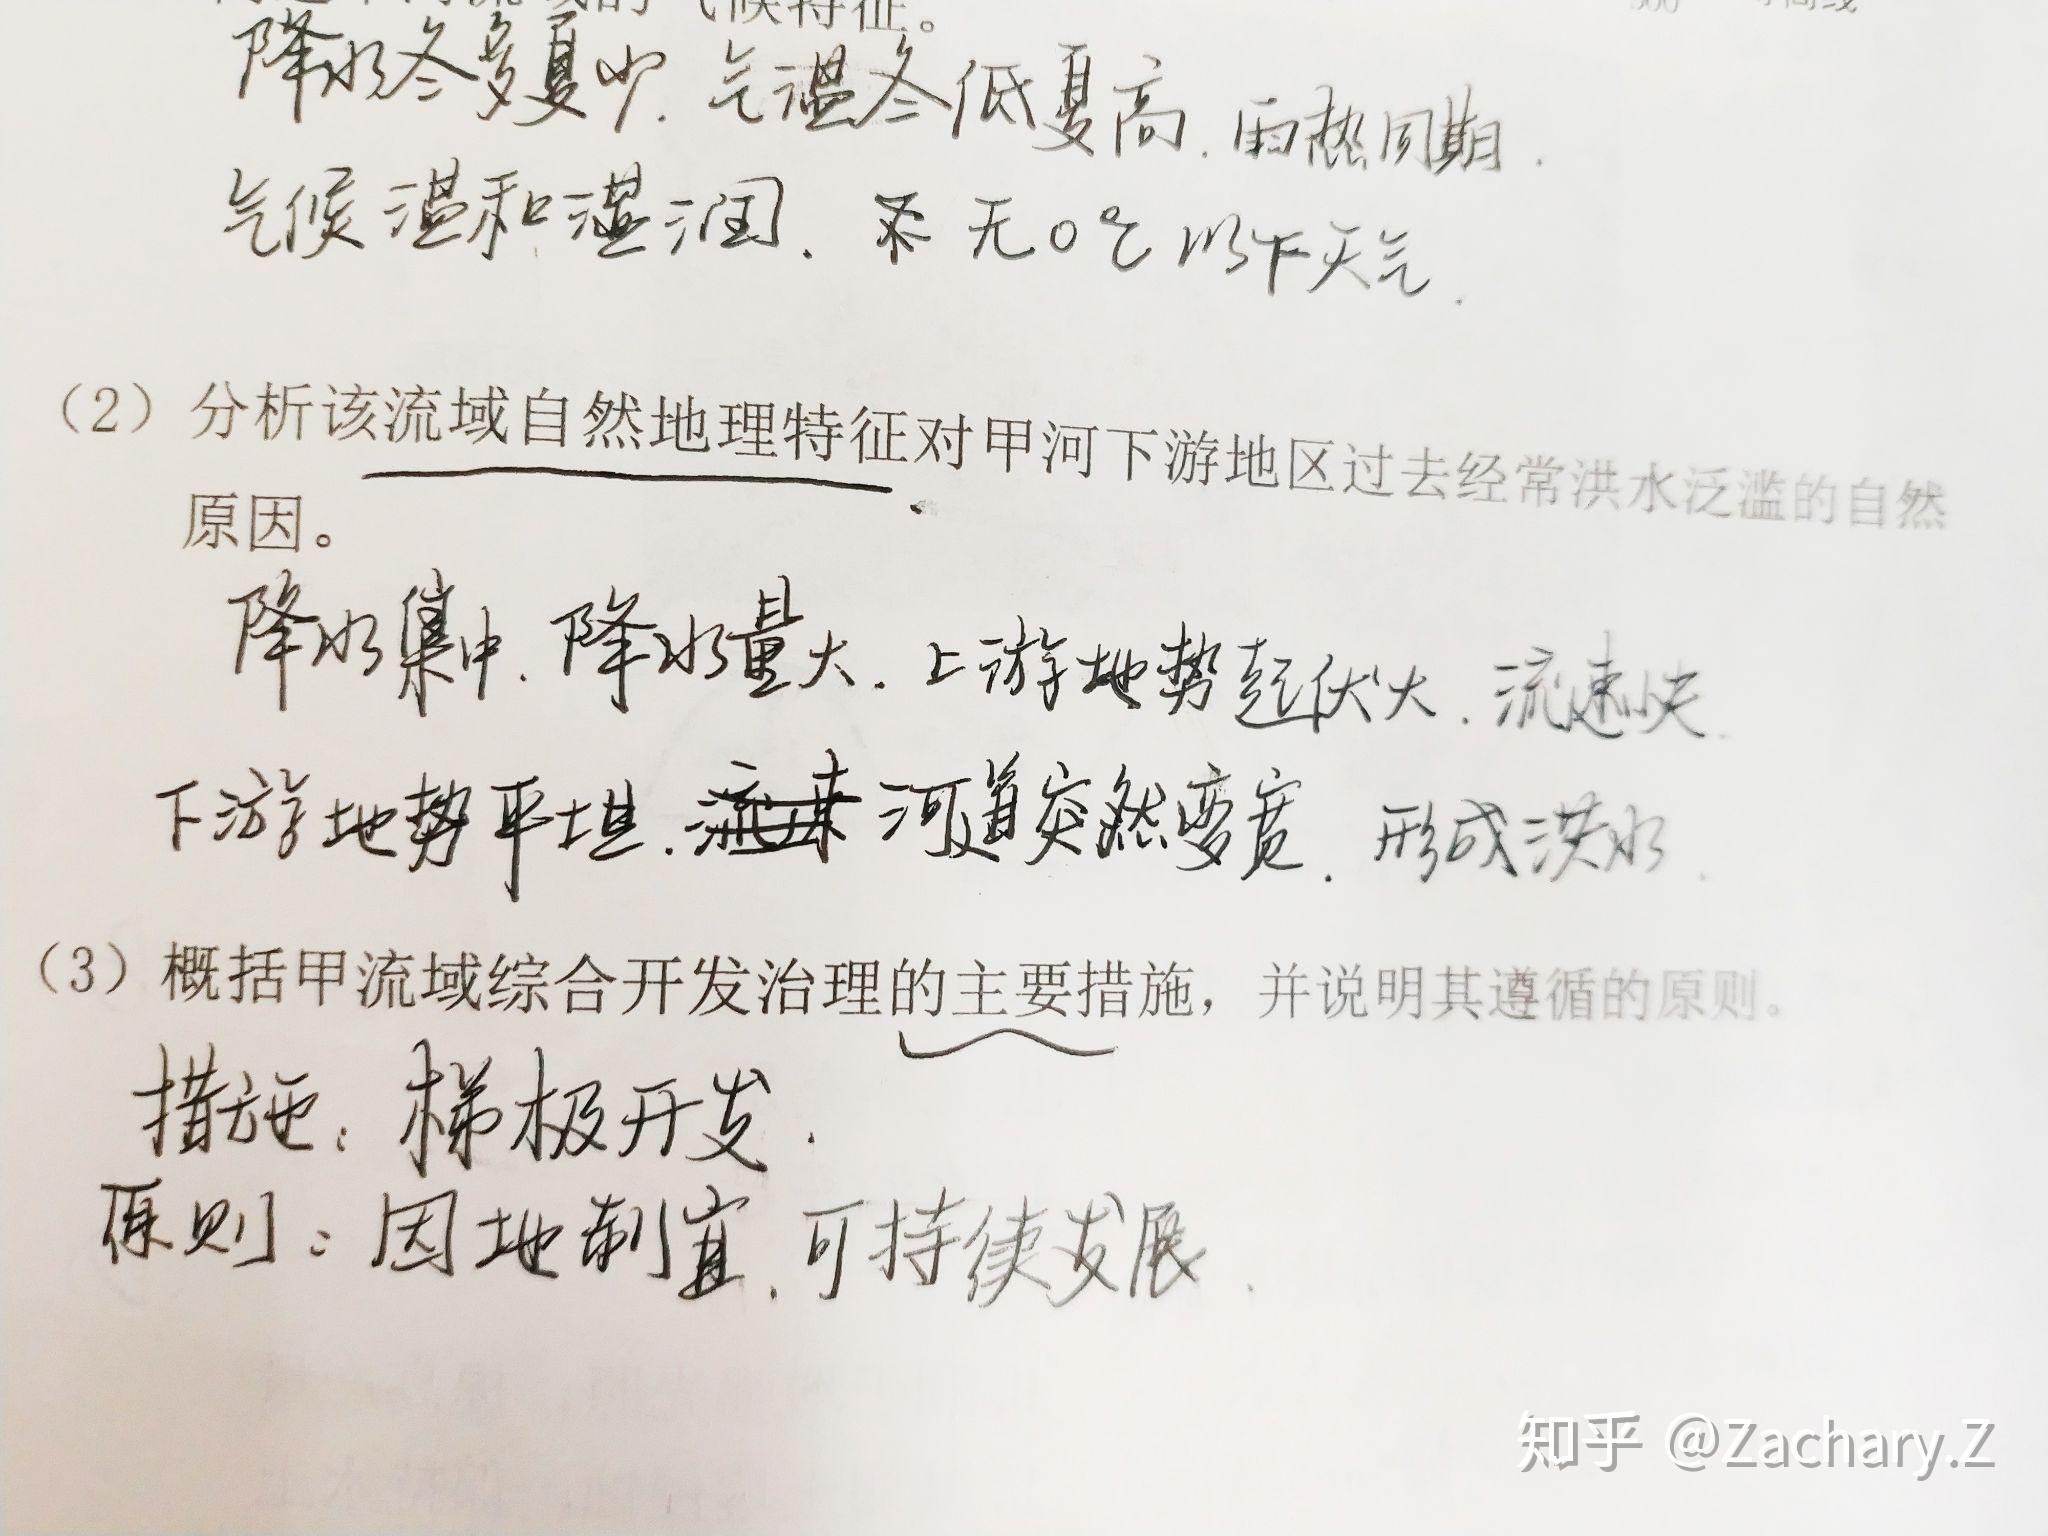 气候特征。
降水冬多夏少.气温冬低夏高.雨热同期.
气候温和湿润.无0℃以下天气.
(2)分析该流域自然地理特征对甲河下游地区过去经常洪水泛滥的自然
原因。
降水集中.降水量大.上游地势起伏大.流速快.
下游地势平坦.河道突然变宽.形成洪水.
(3)概括甲流域综合开发治理的主要措施，并说明其遵循的原则。
措施：梯极开发.
原则：因地制宜.可持续发展.
知乎 @Zachary.Z